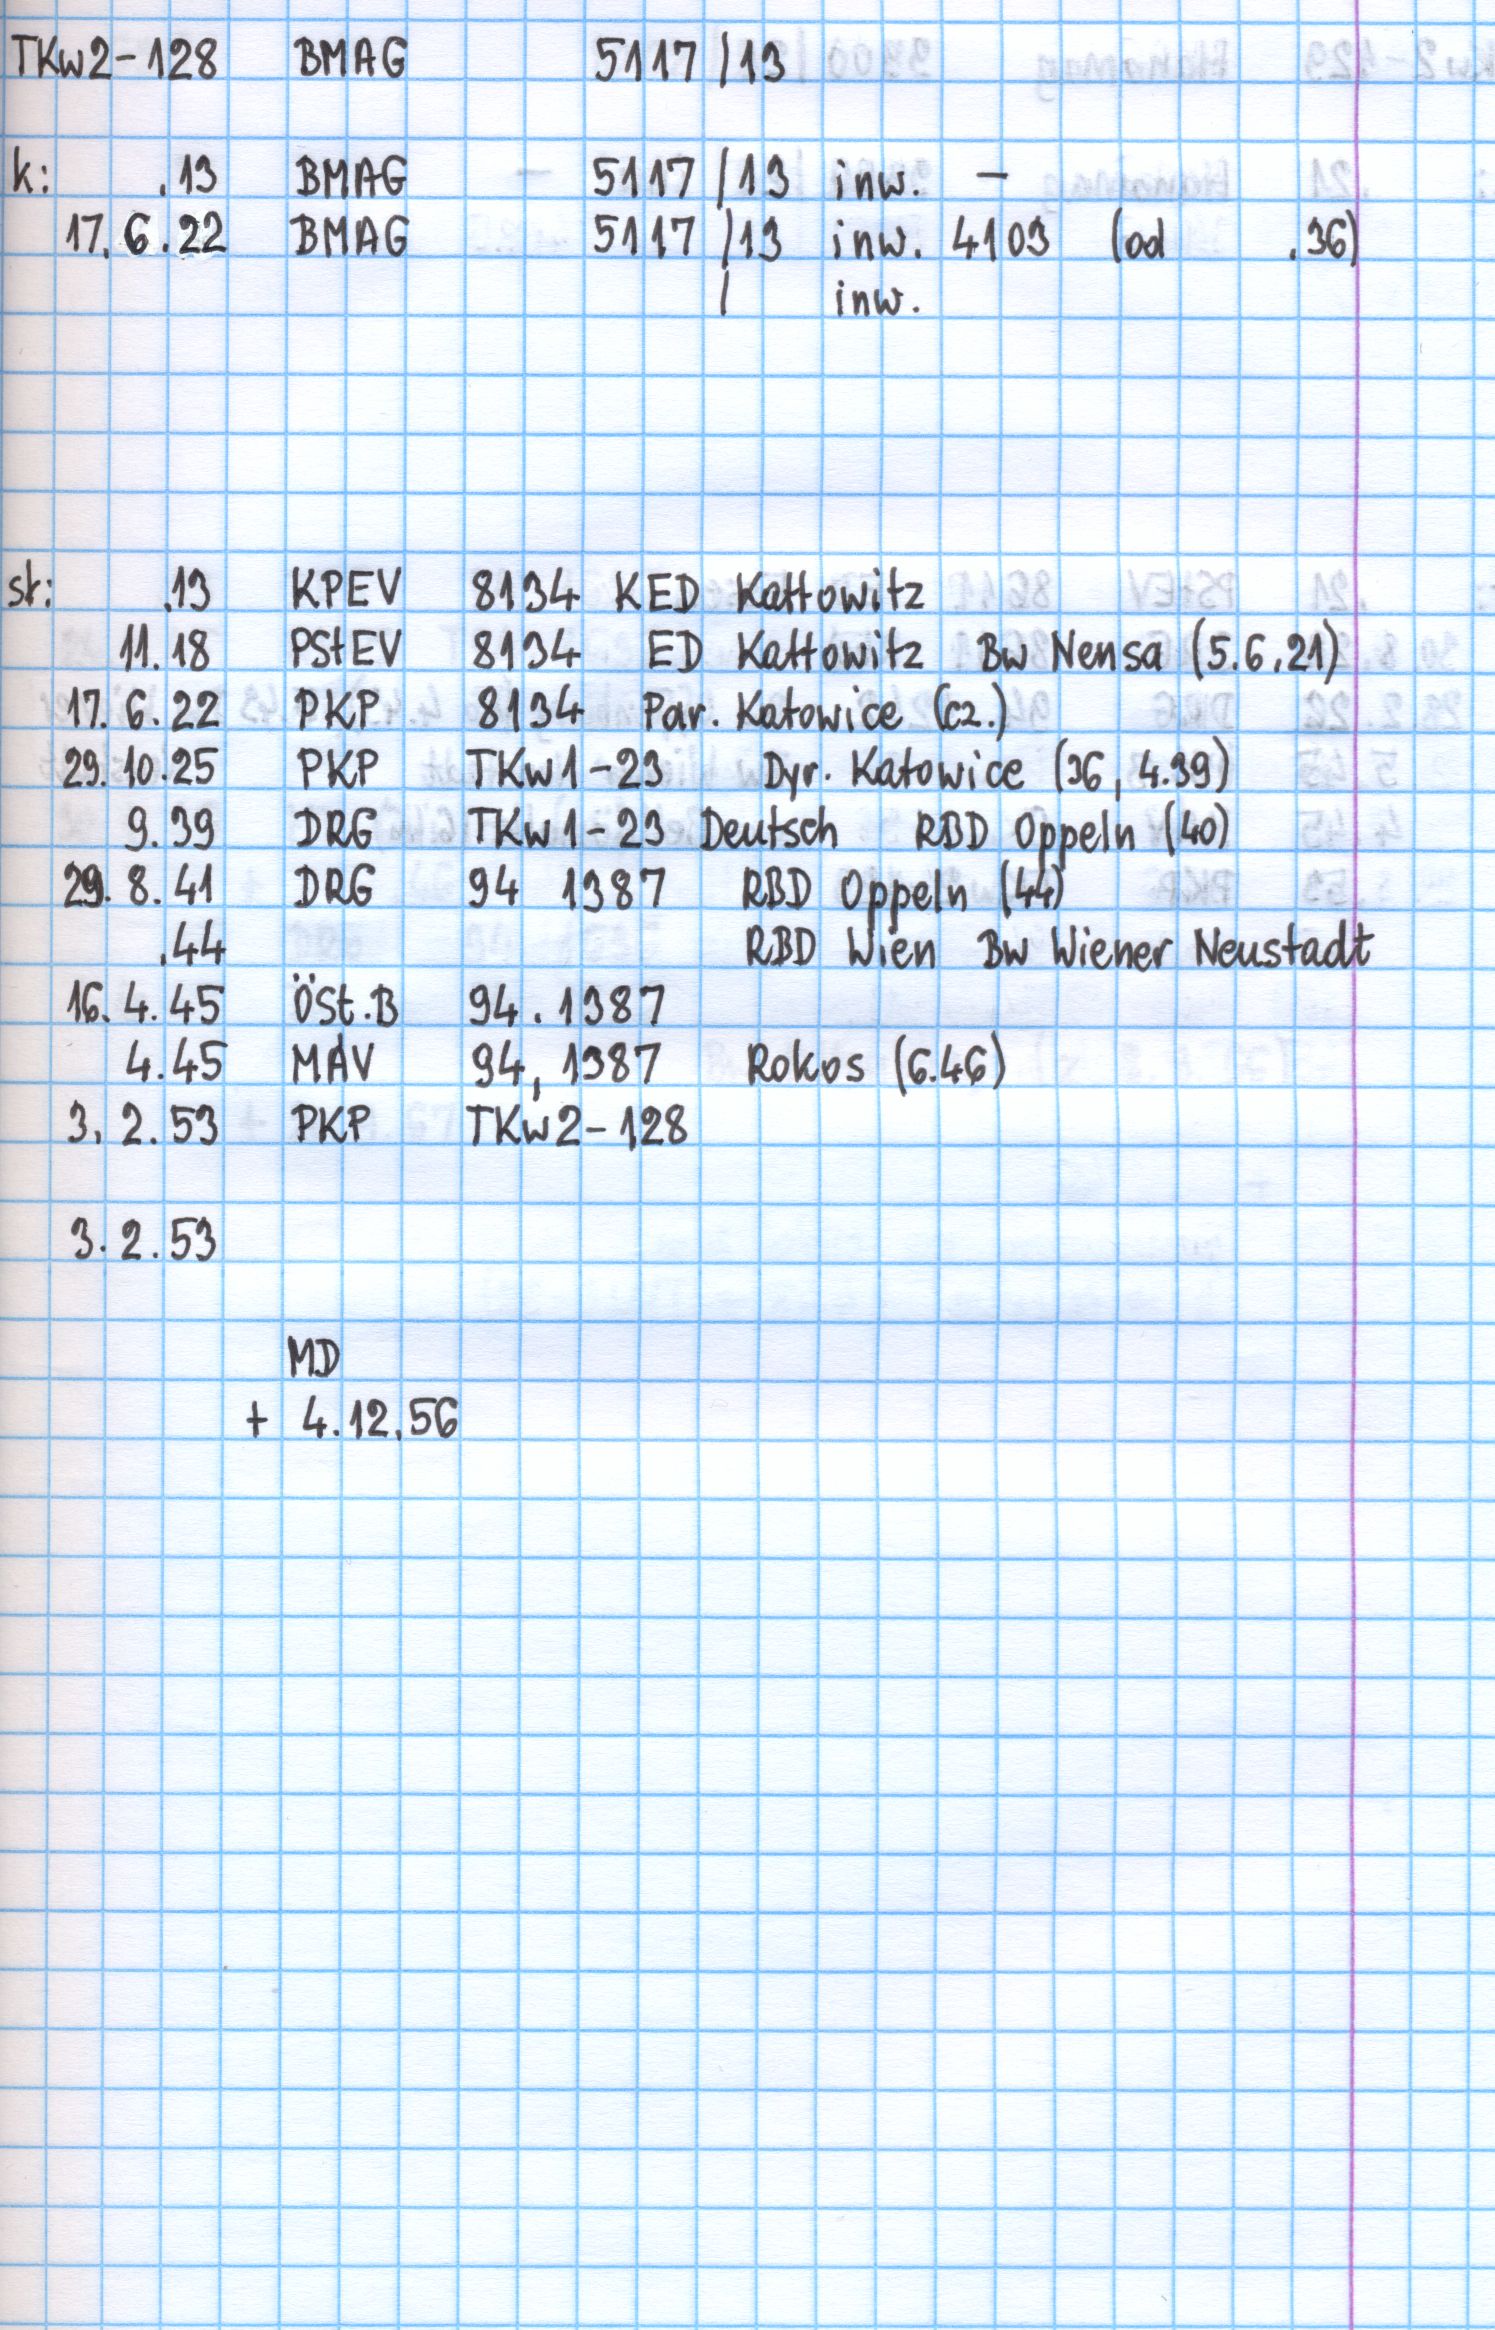 TKw2-128 BMAG 5117/13
k: .13 BMAG 5117/13 inw. -
17.6.22 BMAG 5117/13 inw. 4103 (od .36)
/ inw.
st: .13 KPEV 8134 KED Kattowitz
11.18 PStEV 8134 ED Kattowitz Bw Nensa (5.6.21)
17.6.22 PKP 8134 Par. Katowice (cz.)
29.10.25 PKP TKw1-23 Dyr. Katowice (36, 4.39)
9.39 DRG TKw1-23 Deutsch RBD Oppeln (40)
29.8.41 DRG 94 1387 RBD Oppeln (44)
.44 RBD Wien Bw Wiener Neustadt
16.4.45 ÖSt.B 94.1387
4.45 MÁV 94,1387 Rokos (6.46)
3.2.53 PKP TKw2-128
3.2.53
MD
+ 4.12.56